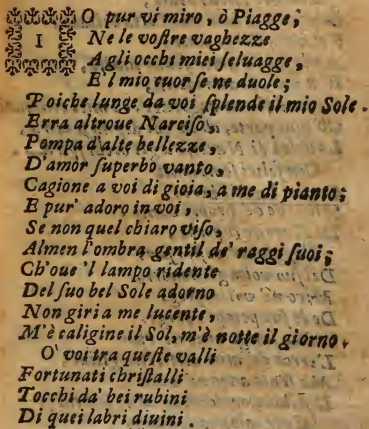 IO pur vi miro, ò Piagge;
Ne le vostre vaghezze
A gli occhi miei selvagge,
E'l mio cuor se ne duole;
Poiche lunge da voi splende il mio Sole.
Erra altroue Narciso,
Pompa d'alte bellezze,
D'amòr superbo vanto,
Cagione a voi di gioia, a me di pianto;
E pur' adoro in voi,
Se non quel chiaro viso,
Almen l'ombra gentil de' raggi suoi;
Ch'oue 'l lampo ridente
Del suo bel Sole adorno
Non giri a me lucente,
M'è caligine il Sol, m'è notte il giorno.
O' voi tra queste valli
Fortunati christalli
Tocchi da' bei rubini
Di quei labri diuini.